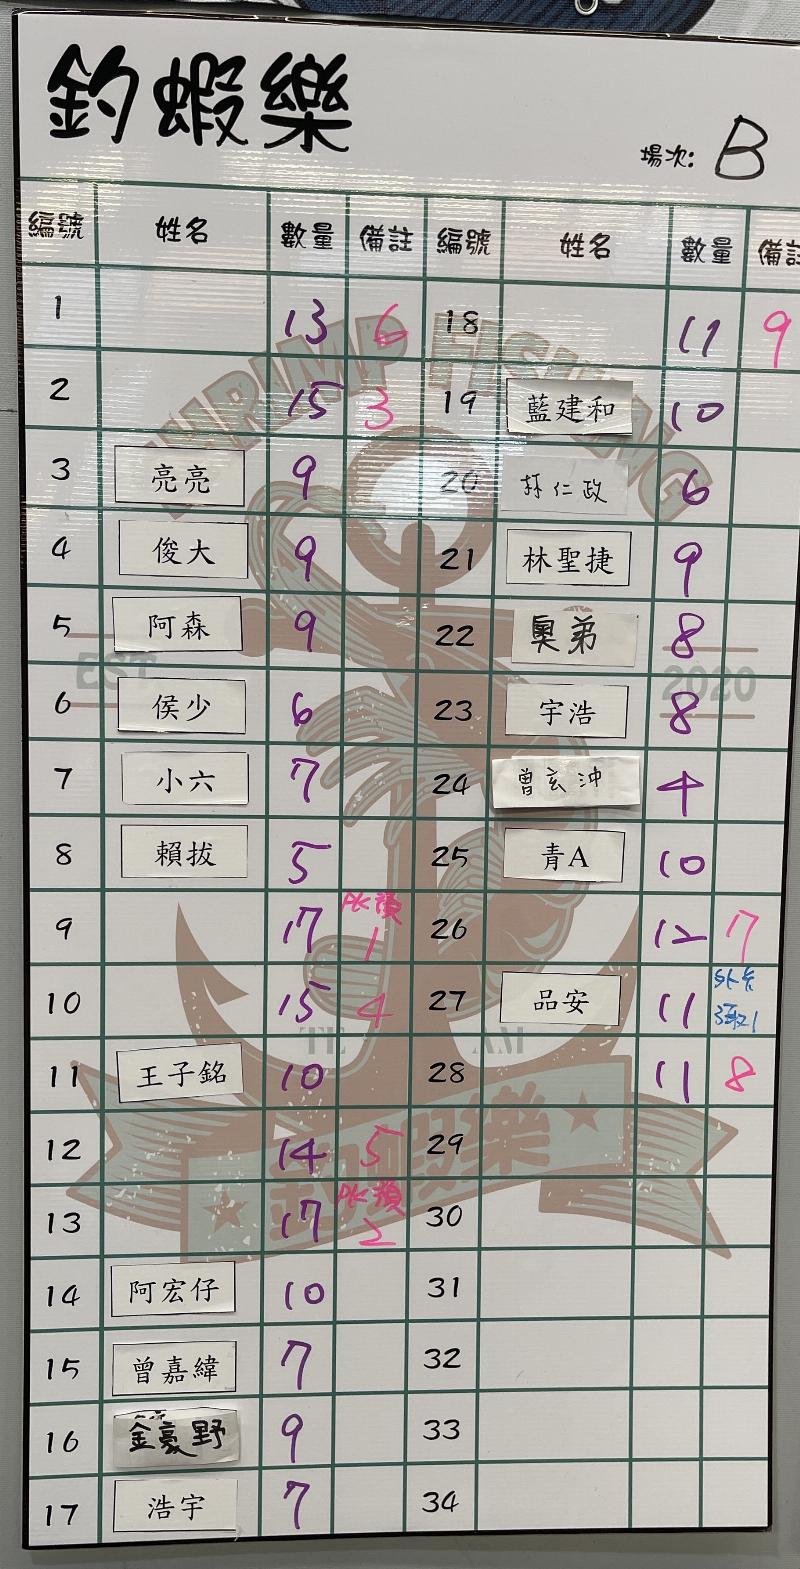 釣蝦樂
場次: B
編號 姓名 數量 備註 編號 姓名 數量 備註
1 13 6 18 11 9
2 15 3 19 藍建和 10
3 亮亮 9 20 林仁政 6
4 俊大 9 21 林聖捷 9
5 阿森 9 22 奧弟 8
6 侯少 6 23 宇浩 8
7 小六 7 24 曾玄沖 4
8 賴拔 5 25 青A 10
9 17 PK預 1 26 12 7
10 15 4 27 品安 11 外卡
11 王子銘 10 28 11 8
12 14 5 29
13 17 PK預 2 30
14 阿宏仔 10 31
15 曾嘉緯 7 32
16 金豪野 9 33
17 浩宇 7 34
SHRIMP FISHING
EST 2020
TE AM
釣蝦樂